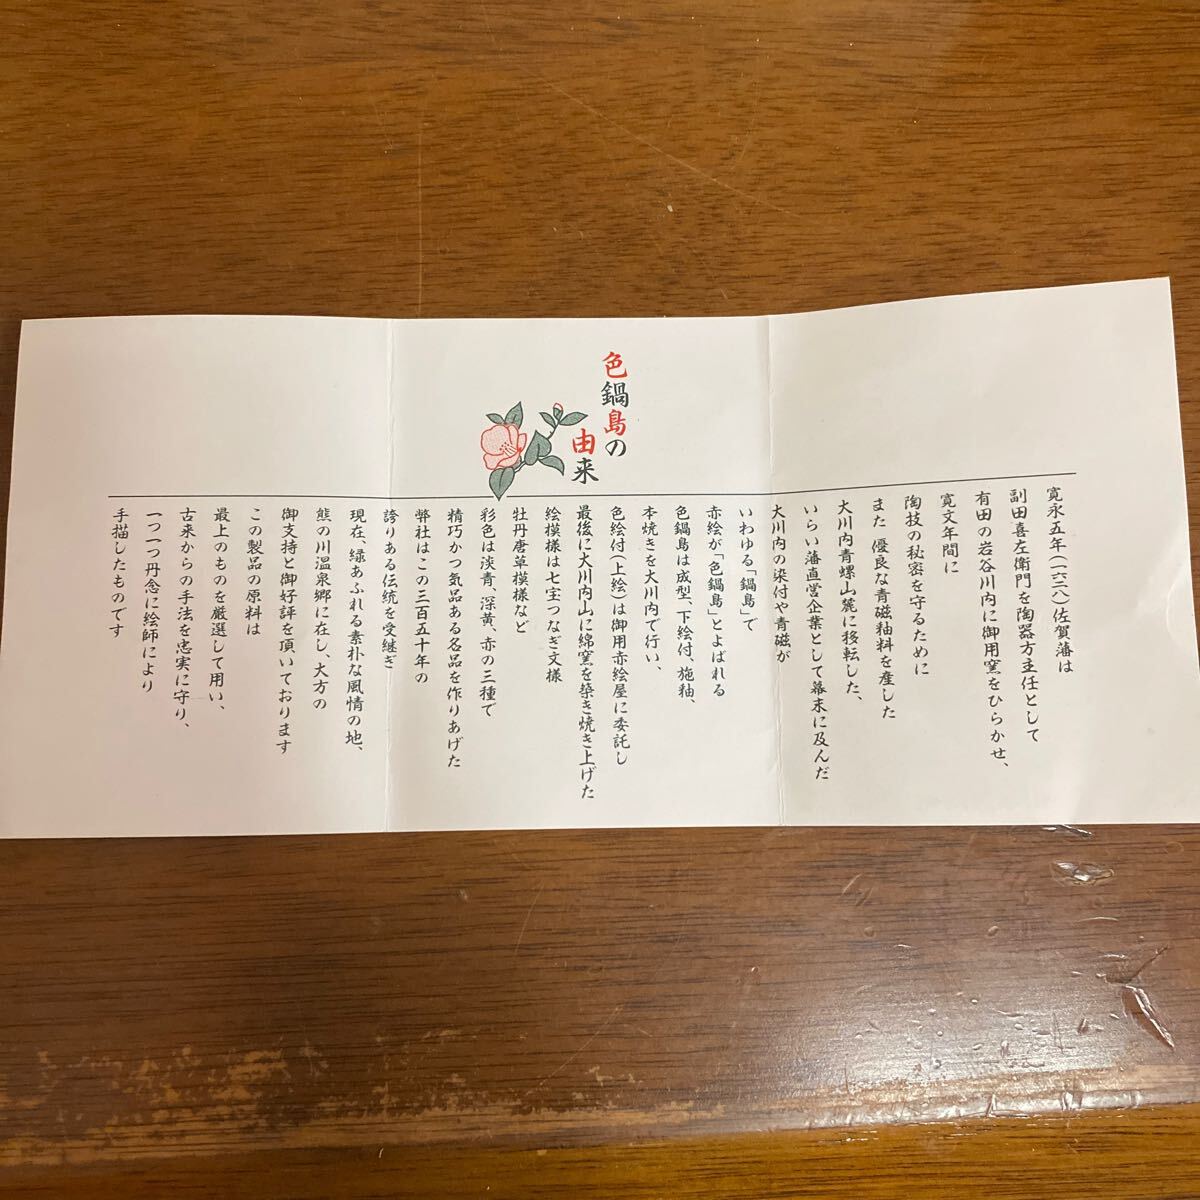 色鍋島の
由来
寛永五年(一六二八)佐賀藩は
副田喜左衛門を陶器方主任として
有田の岩谷川内に御用窯をひらかせ、
寛文年間に
陶技の秘密を守るために
また 優良な青磁釉料を産した
大川内青螺山麓に移転した、
いらい藩直営企業として幕末に及んだ
大川内の染付や青磁が
いわゆる「鍋島」で
赤絵が「色鍋島」とよばれる
色鍋島は成型、下絵付、施釉、
本焼きを大川内で行い、
色絵付(上絵)は御用赤絵屋に委託し
最後に大川内山に綿窯を築き焼き上げた
絵模様は七宝つなぎ文様
牡丹唐草模様など
彩色は淡青、深黄、赤の三種で
精巧かつ気品ある名品を作りあげた
弊社はこの三百五十年の
誇りある伝統を受継ぎ
現在、緑あふれる素朴な風情の地、
熊の川温泉郷に在し、大方の
御支持と御好評を頂いております
この製品の原料は
最上のものを厳選して用い、
古来からの手法を忠実に守り、
一つ一つ丹念に絵師により
手描したものです